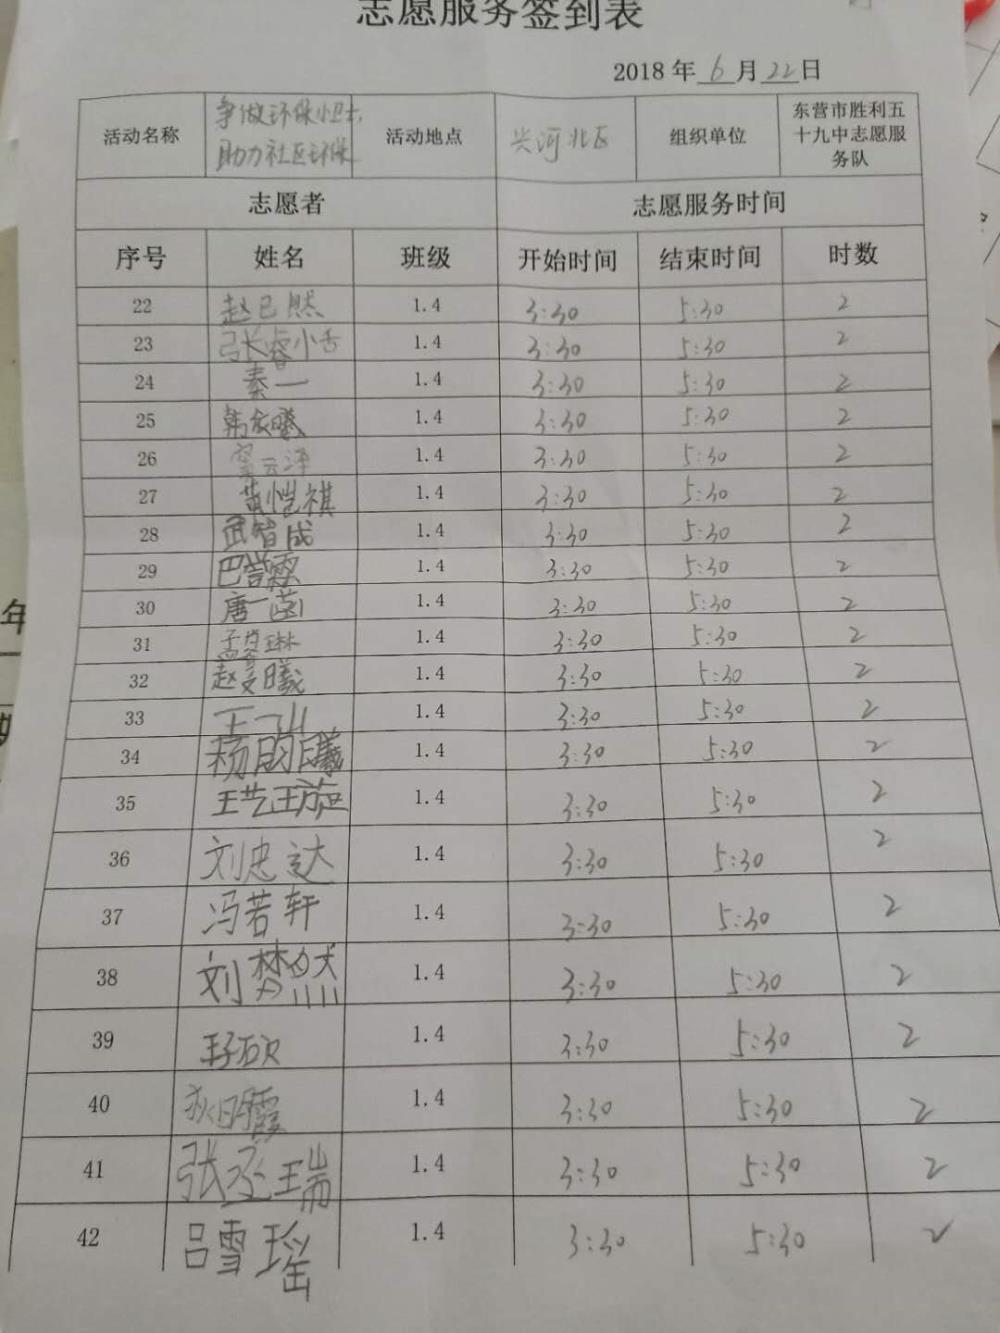 志愿服务签到表
2018年6月22日
活动名称 争做环保小卫士,助力社区环保 活动地点 兴河北区 组织单位 东营市胜利五十九中志愿服务队
志愿者 志愿服务时间
序号 姓名 班级 开始时间 结束时间 时数
22 赵已然 1.4 3:30 5:30 2
23 张睿 1.4 3:30 5:30 2
24 秦一 1.4 3:30 5:30 2
25 韩依曦 1.4 3:30 5:30 2
26 云泽 1.4 3:30 5:30 2
27 黄恺祺 1.4 3:30 5:30 2
28 武智成 1.4 3:30 5:30 2
29 巴誉霖 1.4 3:30 5:30 2
30 唐一菡 1.4 3:30 5:30 2
31 孟 琳 1.4 3:30 5:30 2
32 赵 曦 1.4 3:30 5:30 2
33 王一山 1.4 3:30 5:30 2
34 杨 曦 1.4 3:30 5:30 2
35 王艺 1.4 3:30 5:30 2
36 刘忠达 1.4 3:30 5:30 2
37 冯若轩 1.4 3:30 5:30 2
38 刘梦然 1.4 3:30 5:30 2
39 王子硕 1.4 3:30 5:30 2
40 狄明霞 1.4 3:30 5:30 2
41 张丞瑞 1.4 3:30 5:30 2
42 吕雪瑶 1.4 3:30 5:30 2
年